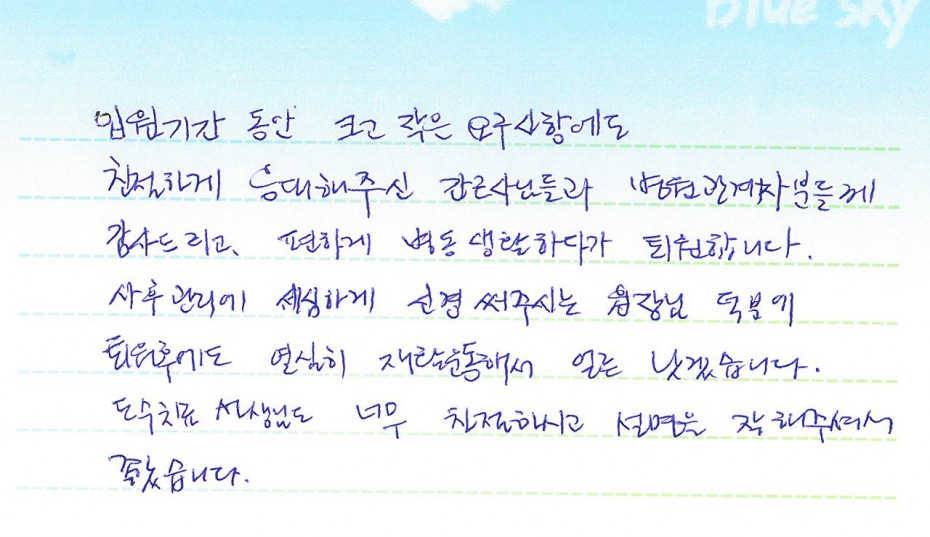 Blue sky
입원기간 동안 크고 작은 요구사항에도
친절하게 응대해주신 간호사님들과 병원관계자분들께
감사드리고, 편하게 병동생활하다가 퇴원합니다.
사후관리에 세심하게 신경써주시는 원장님 덕분에
퇴원후에도 열심히 재활운동해서 얼른 낫겠습니다.
도수치료 선생님도 너무 친절하시고 설명을 잘해주셔서
좋았습니다.